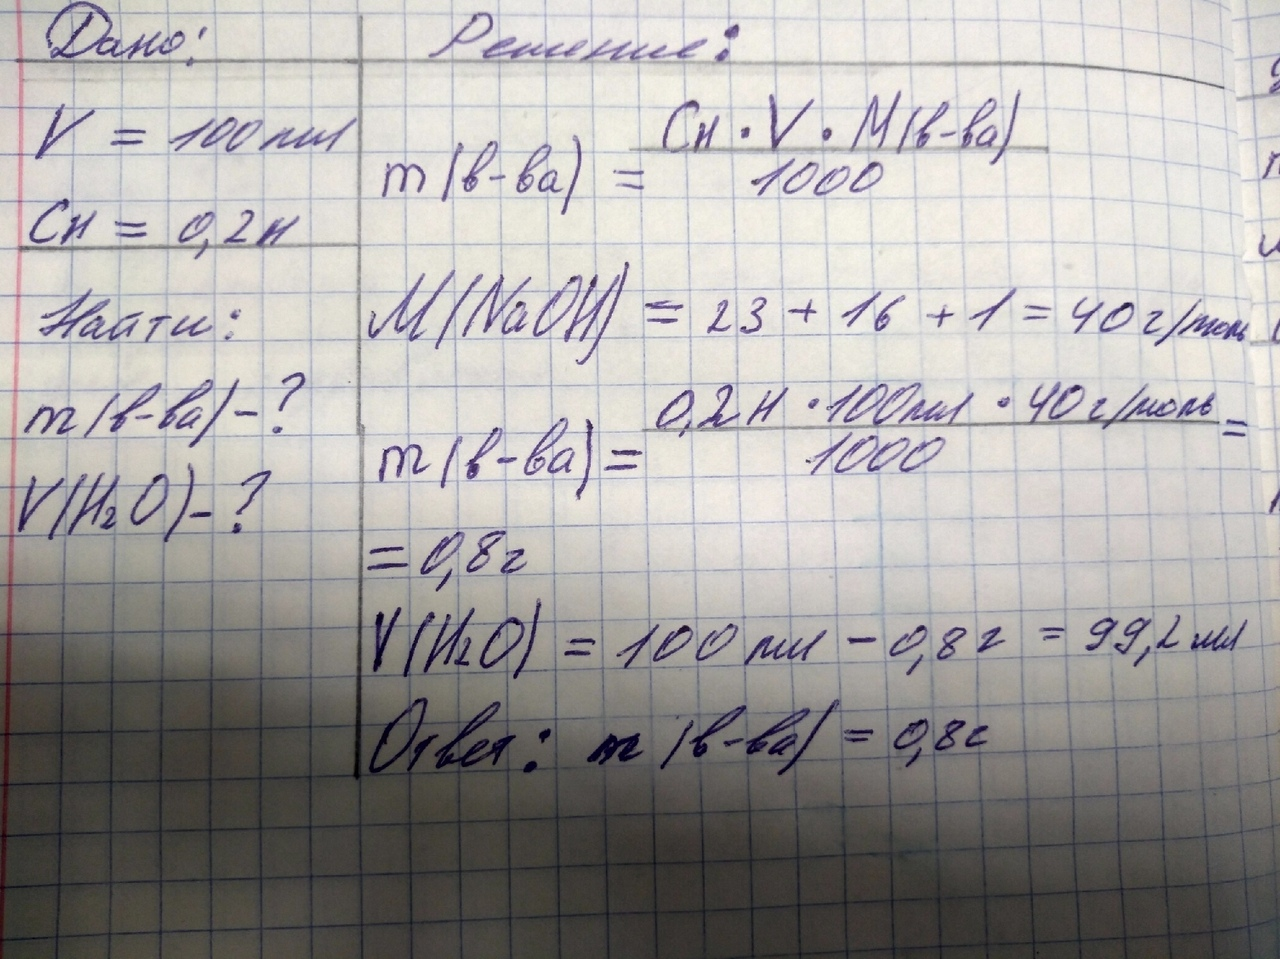 Дано:
V = 100мл
Сн = 0,2н
Найти:
m(в-ва)-?
V(H₂O)-?
Решение:
m(в-ва) = Сн · V · M(в-ва)
1000
M(NaOH) = 23 + 16 + 1 = 40г/моль
m(в-ва)= 0,2н · 100мл · 40г/моль =
1000
= 0,8г
V(H₂O) = 100 мл - 0,8г = 99,2мл
Ответ: m(в-ва) = 0,8г